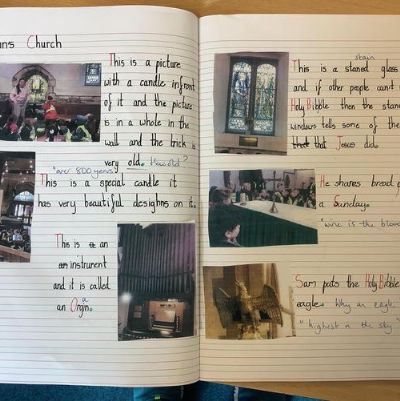 ns Church
This is a picture
with a candle infront
of it and the picture
is in a whole in the
wall and the brick is
very old. How old?
"over 800 years"
This is a special candle it
has very beautiful desighns on it.
This is an
an instrument
and it is called
an Orgn.
a
stain
This is a staned glass
and if other people can't
Holy Bibble then the stan
windows tells some of the
that Jesus did.
He shares bread
a Sunday.
"wine is the bloo
Sam puts the Holy Bibble
eagle. Why an eagle
"highest in the sky"